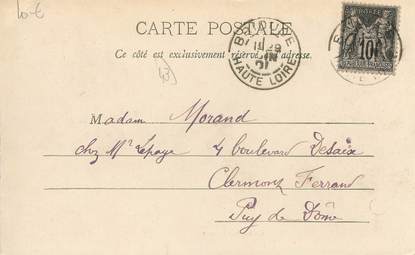 10-E
CARTE POSTALE
Ce côté est exclusivement réservé à l'adresse.
B
HAUTE LOIRE
10
Madam Morand
chez Mr Lepage 4 boulevard Desaix
Clermont Ferrand
Puy de Dôme